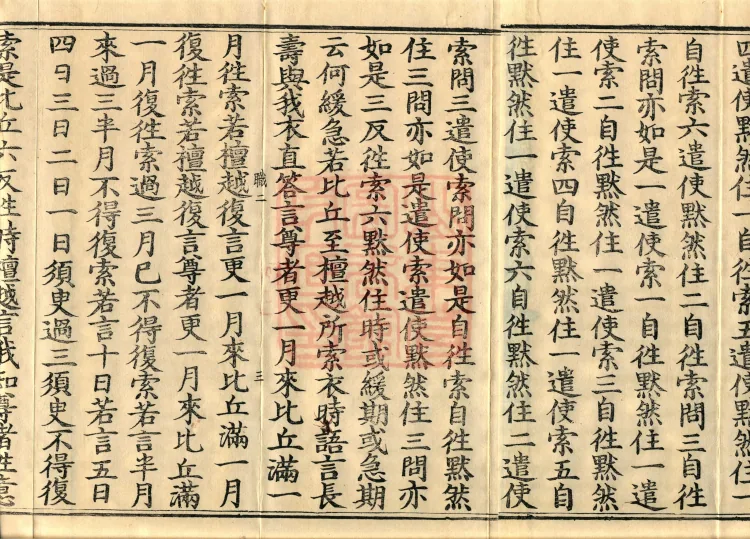 四遣使默然住一自徃索五遣使默然住一
自徃索六遣使默然住二自徃索問三自徃
索問亦如是一遣使索一自徃默然住一遣
使索二自徃默然住一遣使索三自徃默然
住一遣使索四自徃默然住一遣使索五自
徃默然住一遣使索六自徃默然住二遣使
索問三遣使索問亦如是自徃索自徃默然
住三問亦如是遣使索遣使默然住三問亦
如是三反徃索六默然住時或緩期或急期
云何緩急若比丘至檀越所索衣時語言長
壽與我衣直答言尊者更一月來比丘滿一
職二 三
月徃索若檀越復言更一月來比丘滿一月
復徃索若檀越復言尊者更一月來比丘滿
一月復徃索過三月已不得復索若言半月
來過三半月不得復索若言十日若言五日
四日三日二日一日須臾過三須臾不得復
索是比丘六反徃時檀越言我知尊者徃意